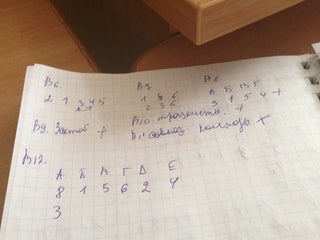 В6. В7 В8
2 1 3 4 5 1 5 6 А Б В Г
2 3 6 3 1 5 4 +
В9. Застой + В10. +
В11 +
В12.
А Б В Г Д Е
8 1 5 6 2 4
3